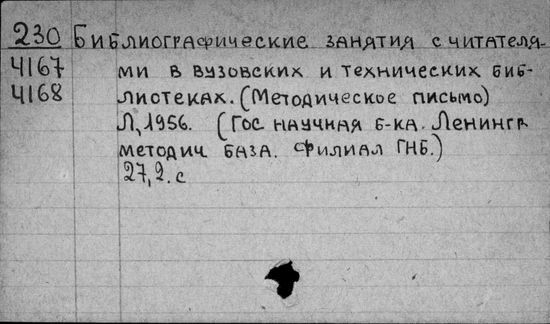 230 Библиографические занятия с читателя-
4167 ми в вузовских и технических биб-
4168 лиотеках. (Методическое письмо)
Л, 1956. (Гос научная б-ка. Ленингр
методич база. Филиал ГНБ.)
27, 2. с